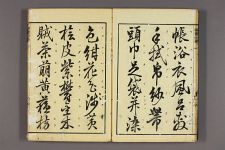 帳浴衣風呂敷
手拭帛紗帶
頭巾足袋并染
色紺花色浅黄
桧皮紫鬱金木
賊茶萠黄蘓枋